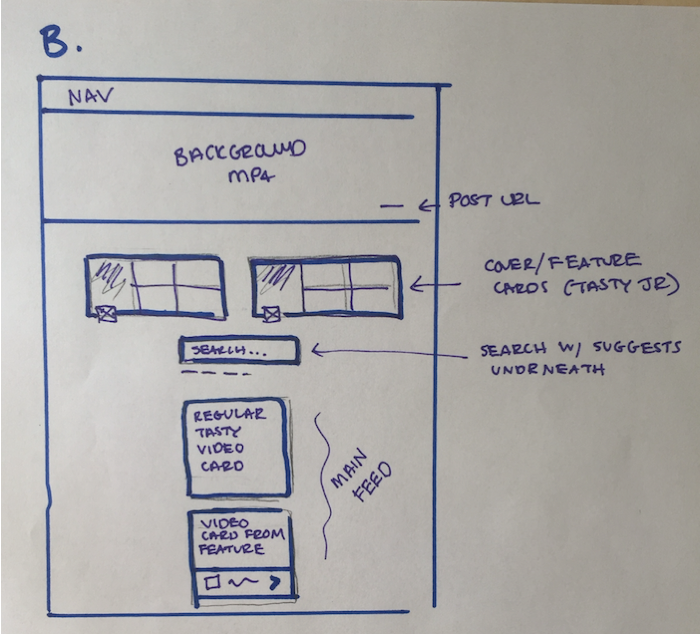 B.
NAV
BACKGROUND
MP4
POST URL
COVER/FEATURE
CARDS (TASTY JR)
SEARCH...
SEARCH W/ SUGGESTS
UNDRNEATH
REGULAR
TASTY
VIDEO
CARD
MAIN
FEED
VIDEO
CARD FROM
FEATURE